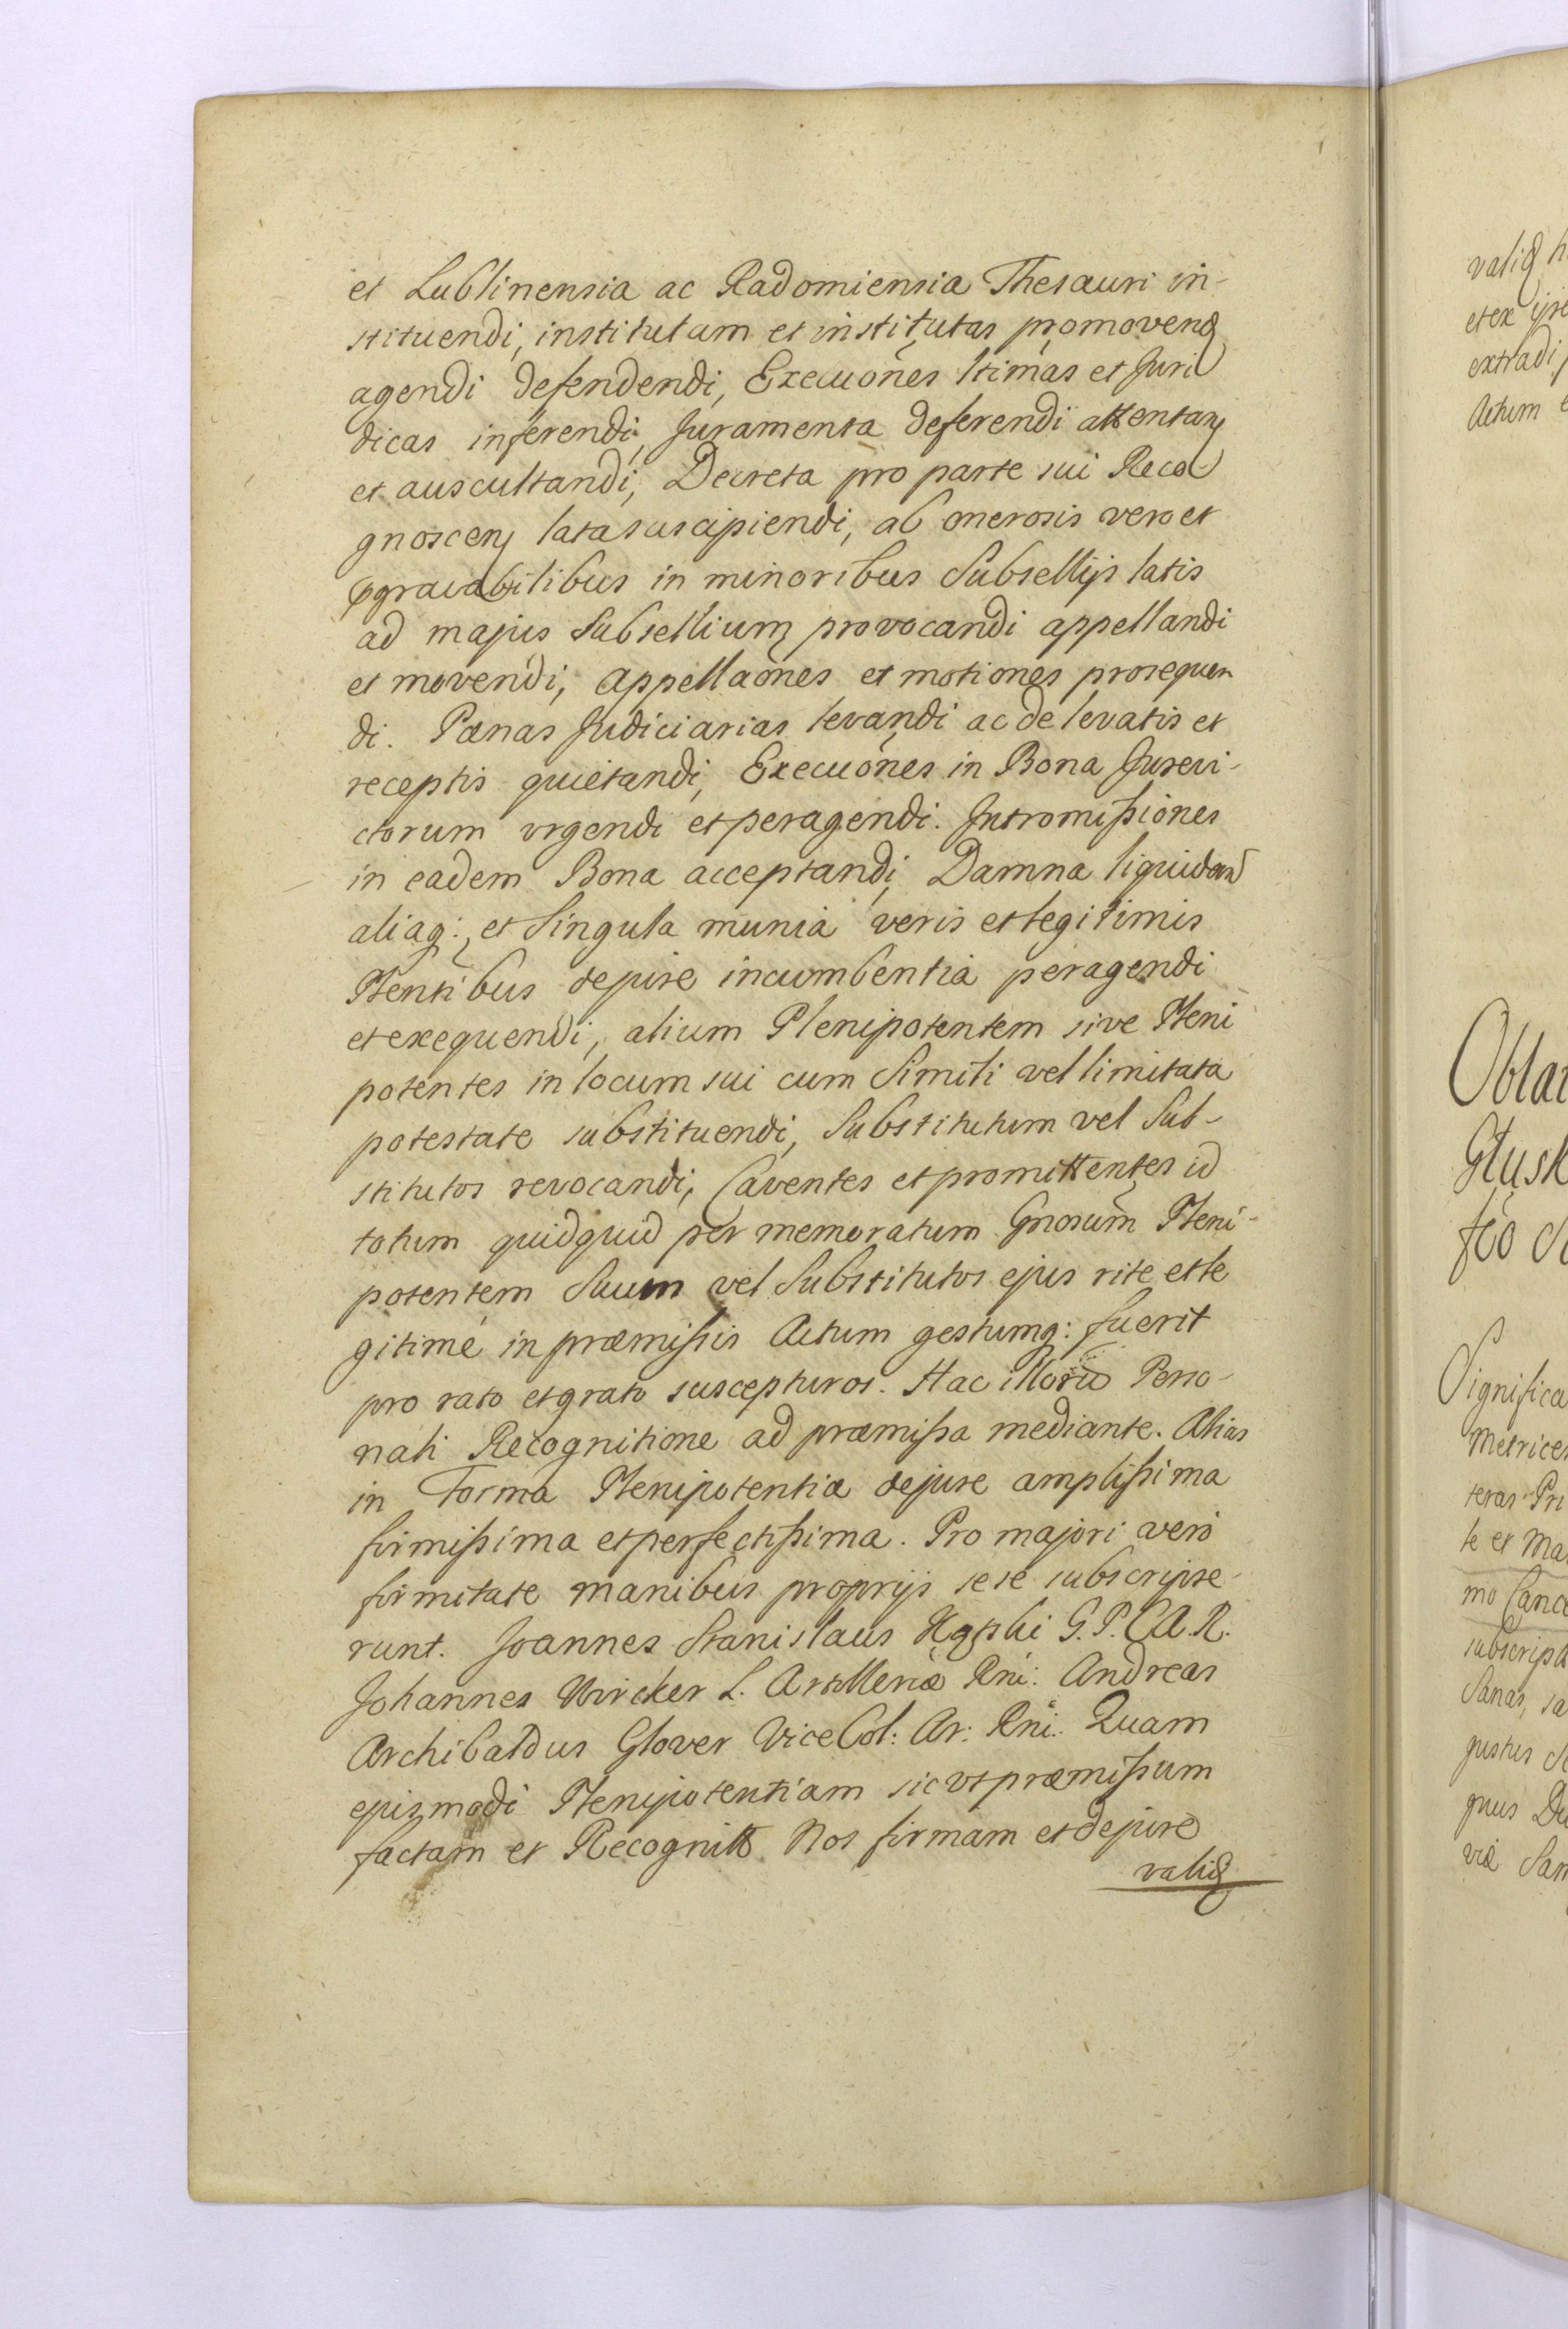 et Lublinensia ac Radomiensia Thesauri in-
stituendi, institutam et institutas promovend
agendi defendendi, Execuões ltimas et Juri
dicas inferendi, Juramenta deferendi attentan
et auscultandi, Decreta pro parte sui Reco
gnoscen lata suscipiendi, ab onerosis vero et
graiabilibus in minoribus Subsellijs latis
ad majus Subsellium provocandi appellandi
et movendi, appellaões et motiones prosequen
di. Pænas Judiciarias levandi ac de levatis et
receptis quietandi, Execuões in Bona Jurevi-
ctorum urgendi et peragendi. Intromissiones
in eadem Bona acceptandi, Damna liquidand
aliaq: et Singula munia veris et legitimis
Plentibus dejure incumbentia peragendi
et exequendi, alium Plenipotentem sive Pleni
potentes in locum sui cum Simili vel limitata
potestate substituendi, Substitutum vel Sub-
stitutos revocandi, Caventes et promittentes id
totum quidquid per memoratum Gnosum Pleni-
potentem Suum vel Substitutos ejus rite et le
gitimé in præmissis Actum gestumq: fuerit
pro rato et grato suscepturos. Hac illoru Perso-
nali Recognitione ad præmissa mediante. Alias
in Forma Plenipotentiæ dejure amplissima
firmissima et perfectissima. Pro majori verò
firmitate manibus proprijs sese subscripse-
runt. Joannes Stanislaus G. P. C. A. R.
Johannes Wircker L. Artilleriæ Rni: Andreas
Archibaldus Glover Vice Col: Ar: Rni: Quam
ejuzmodi Plenipotentiam sic ut præmissum
factam et Recognitt Nos firmam et dejure
valid
valid
et ex
extradi
Actum
Oblat
Głusk
Significa
Metrices
teras Pri
te et Ma
mo Cance
subscript
Sanas, sa
gustus
gnus Du
viæ Sam